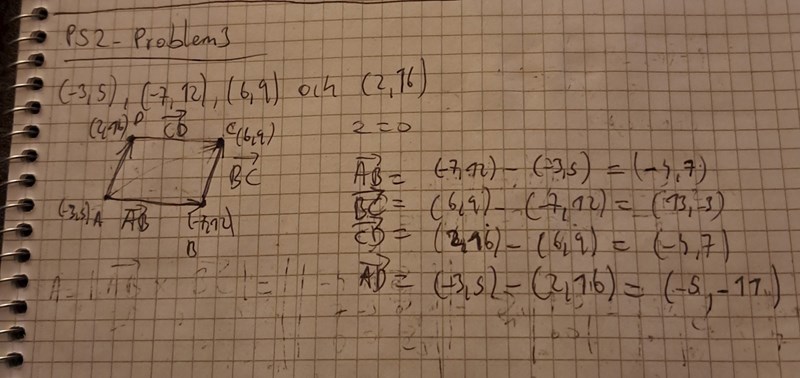 PS2 - Problem 3
(-3,5), (-7,12), (6,9) och (2,16)
(2,16) D CD C (6,9)
z=0
BC
(-3,5) A AB (-7,12)
B
AB = (-7,12) - (-3,5) = (-4,7)
BC = (6,9) - (-7,12) = (13,-3)
CD = (2,16) - (6,9) = (-4,7)
AD = (-3,5) - (2,16) = (-5,-11)